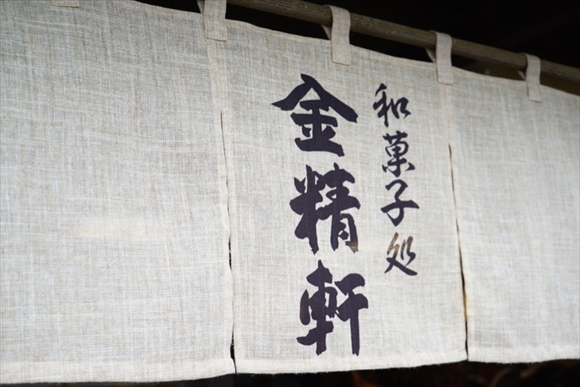 和菓子処
金精軒